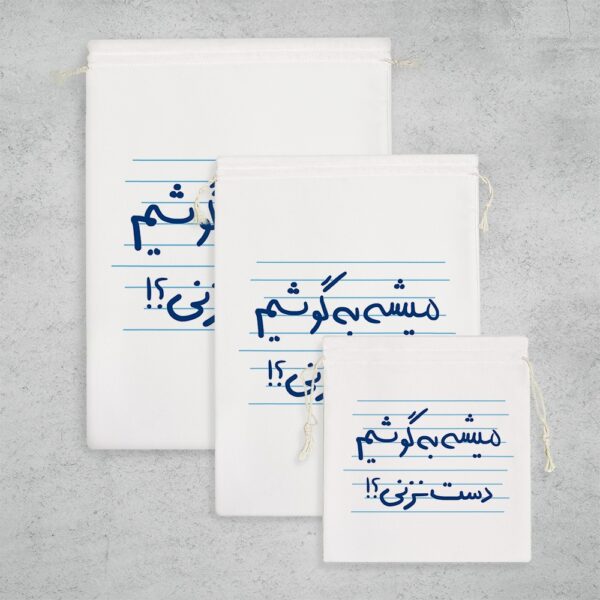 گوشیم
زنی؟!
میشه به گوشیم
زنی؟!
میشه به گوشیم
دست نزنی؟!